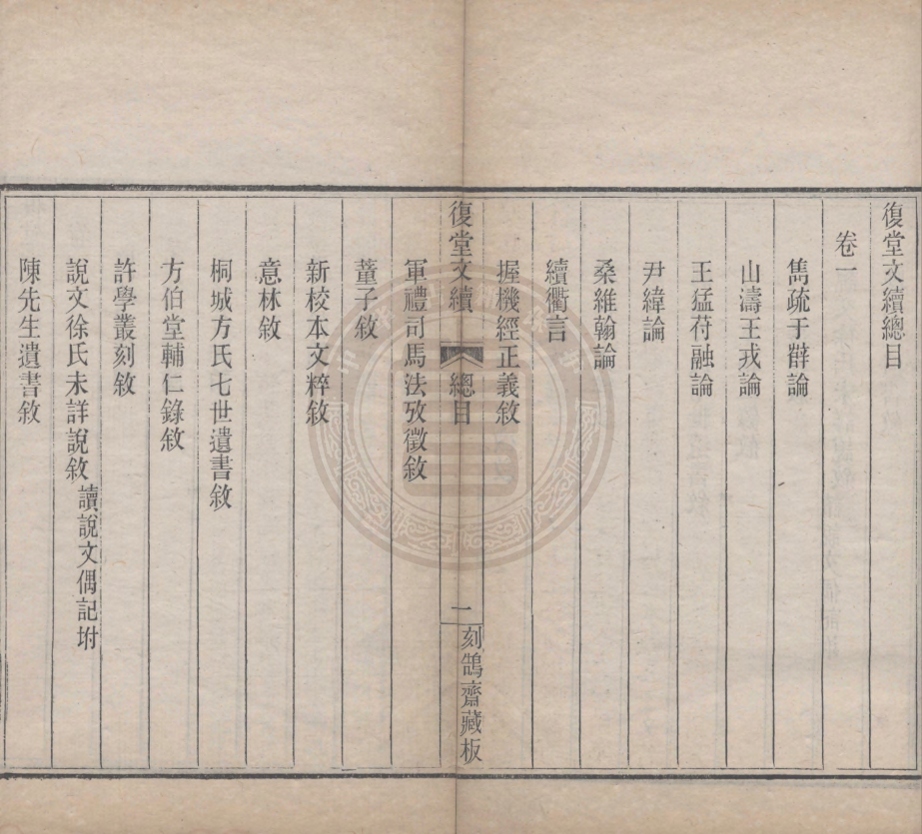 復堂文續總目
卷一
雋疏于辟論
山濤王戎論
王猛苻融論
尹緯論
桑維翰論
續衢言
握機經正義敘
復堂文續
總目
一
刻鵠齋藏板
軍禮司馬法攷徵敘
董子敘
新校本文粹敘
意林敘
桐城方氏七世遺書敘
方伯堂輔仁錄敘
許學叢刻敘
說文徐氏未詳說敘
讀說文偶記坿
陳先生遺書敘